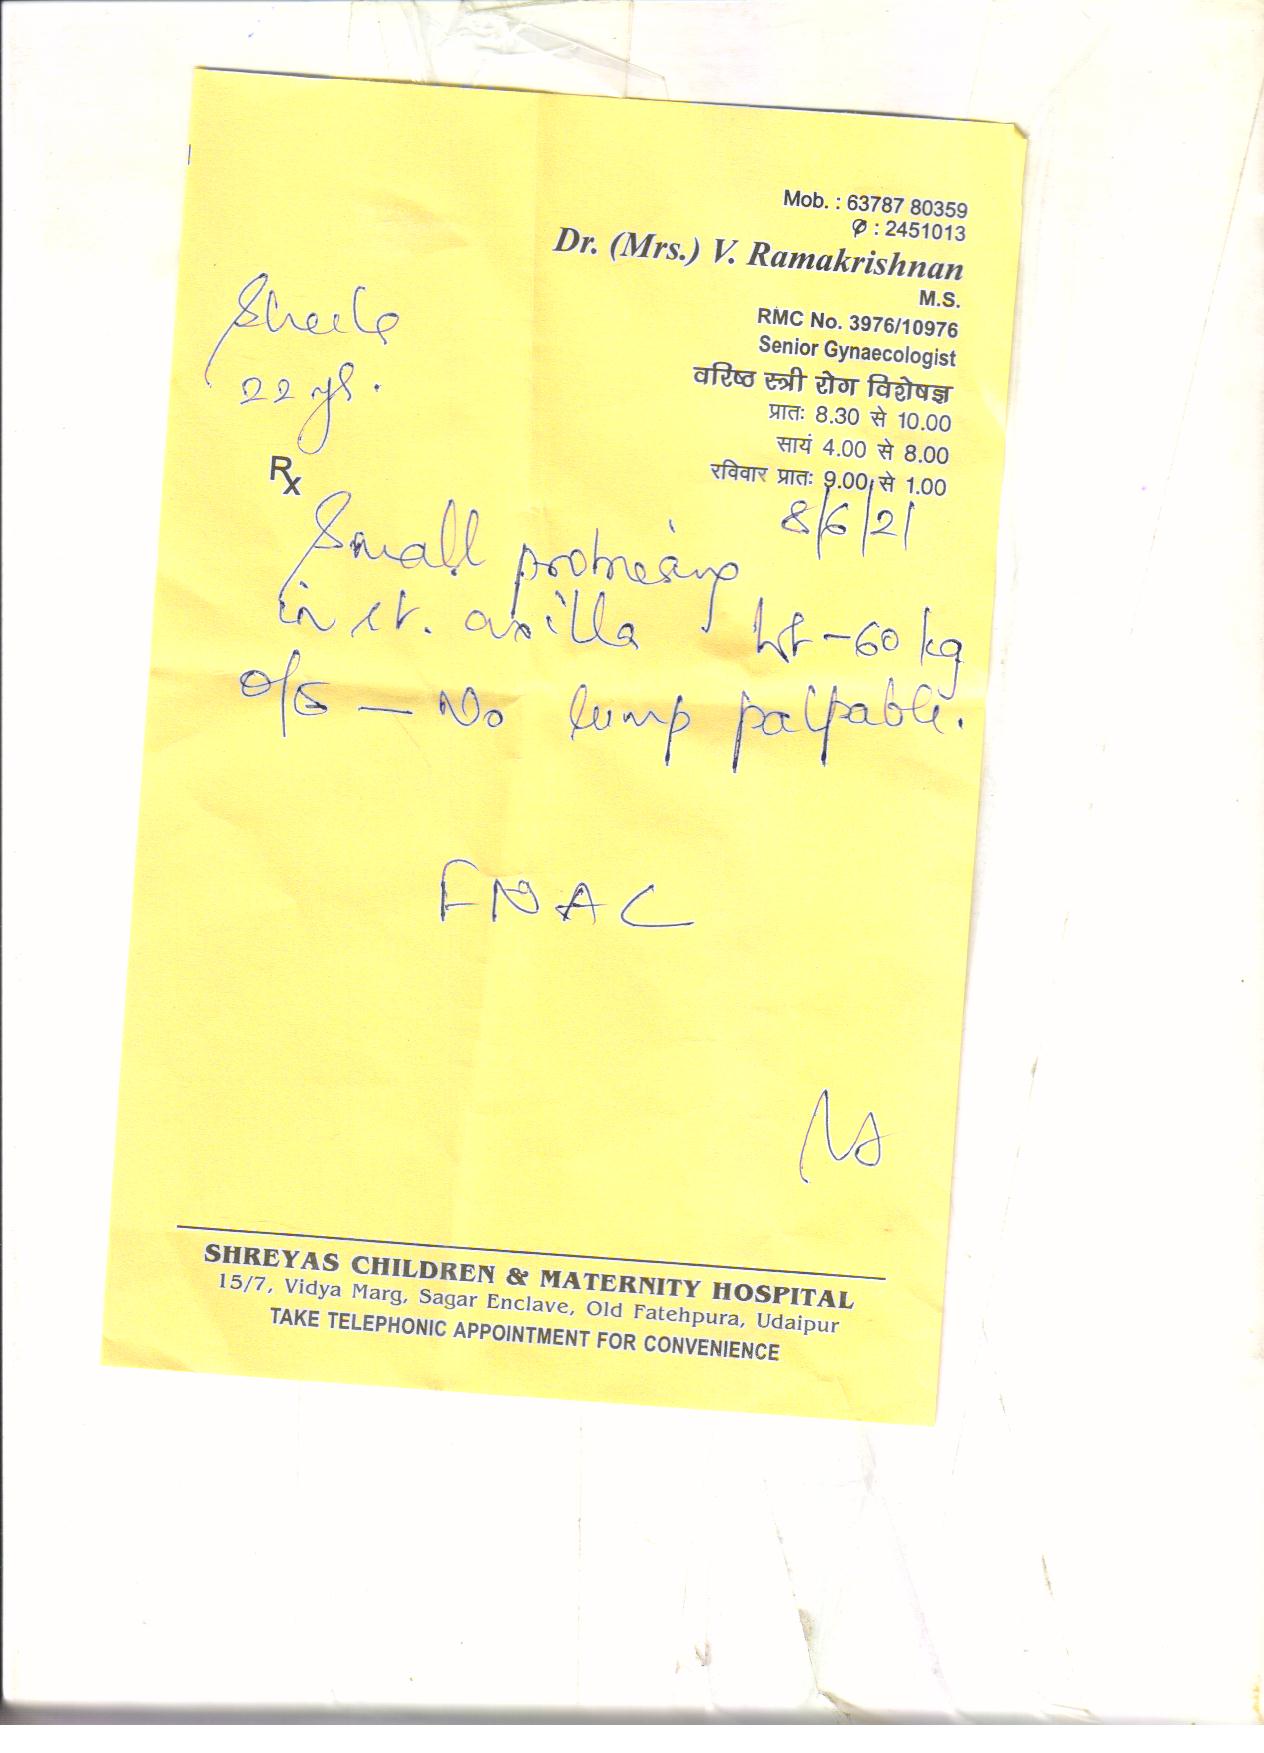 Mob. : 63787 80359
✆ : 2451013
Dr. (Mrs.) V. Ramakrishnan
M.S.
RMC No. 3976/10976
Senior Gynaecologist
वरिष्ठ स्त्री रोग विशेषज्ञ
प्रातः 8.30 से 10.00
सायं 4.00 से 8.00
रविवार प्रातः 9.00 से 1.00
22 yr.
Rx
8/6/21
Small
in rt. axilla wt - 60 kg
No lump palpable.
FNAC
SHREYAS CHILDREN & MATERNITY HOSPITAL
15/7, Vidya Marg, Sagar Enclave, Old Fatehpura, Udaipur
TAKE TELEPHONIC APPOINTMENT FOR CONVENIENCE